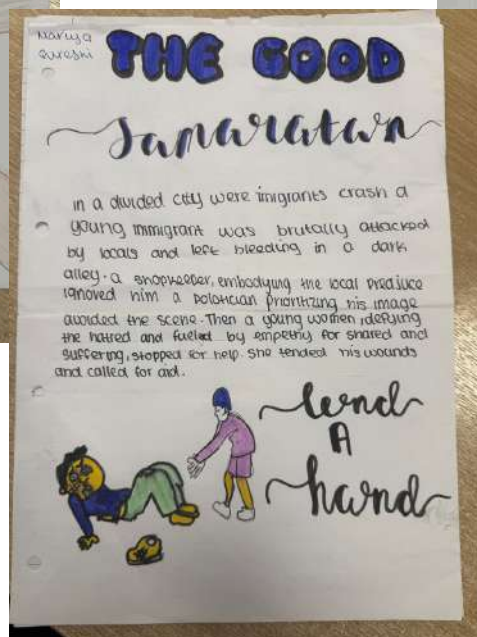 Nariya
Qureshi
THE GOOD
Samaratan
in a divided city were imigrants crash a
young immigrant was brutally attacked
by locals and left bleeding in a dark
alley. a shopkeeper, embodying the local prediuce
ignored him a polotician prioritizing his image
avoided the scene. Then a young women, defying
the hatred and fueled by empethy for shared and
suffering, stopped for help. she tended his wounds
and called for aid.
lend
A
hand